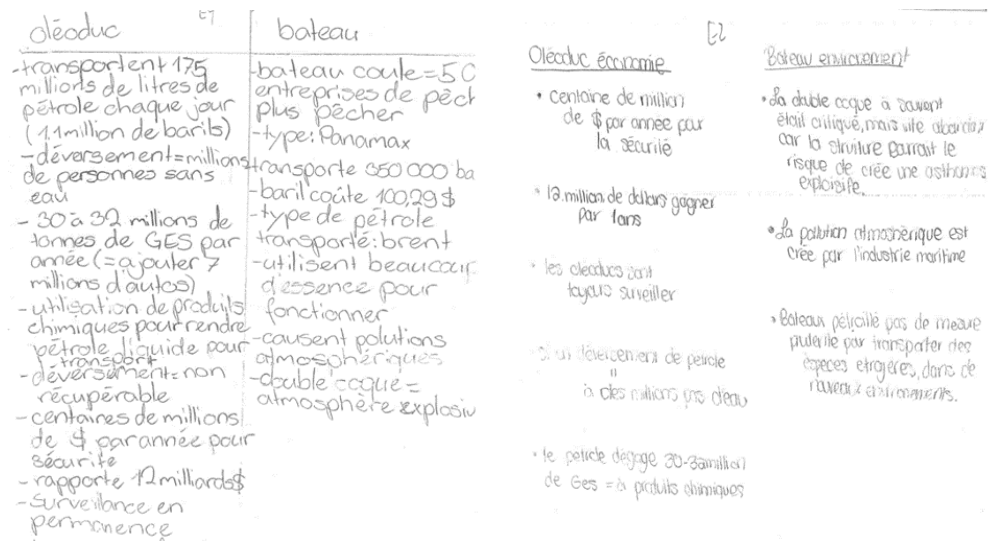 E1
oléoduc
-transportent 175
millions de litres de
pétrole chaque jour
(1.1 million de barils)
-déversement=millions
de personnes sans
eau
- 30 à 32 millions de
tonnes de GES par
année (=ajouter 7
millions d'autos)
- utilisation de produits
chimiques pour rendre
pétrole liquide pour
transport
-déversement=non
récupérable
- centaines de millions
de $ par année pour
sécurité
- rapporte 12 milliards$
- surveillance en
permanence
bateau
-bateau coule=50
entreprises de pêch
plus pêcher
-type: Panamax
transporte 350 000 ba
-baril coûte 100,29 $
-type de pétrole
transporté: brent
-utilisent beaucoup
d'essence pour
fonctionner
-causent polutions
atmosphériques
-double coque=
atmosphère explosiv
E2
Oléoduc économie
• centaine de million
de $ par annee pour
la sécurité
• 12.million de dollars gagner
par 1ans
• les oléoducs sont
toujours surveiller
• si un déversement de petrole
=
à des millions pas d'eau
• le petrole dégage 30-32million
de Ges = à produits chimiques
Bateau environement
• La double coque à souvent
était critiqué, mais vite
car la struture le
risque de crée une
• La pollution atmosphèrique est
crée par l'industrie maritime
• Bateaux pas de mesure
par transporter des
éspeces etrogères, dans de
nouveaux environements.